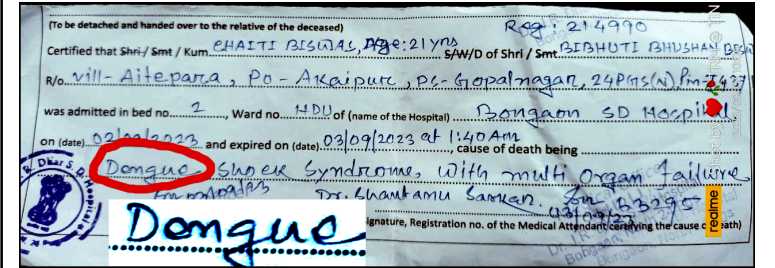 (To be detached and handed over to the relative of the deceased) Reg: 214990
Certified that Shri / Smt / Kum. CHAITI BISWAS, Age: 21 yrs S/W/D of Shri / Smt BIBHUTI BHUSHAN BISW
R/o. vill- Aitepara, Po - Akaipur, PS- Gopalnagar, 24PGS(N),
was admitted in bed no. 2, Ward no. HDU of (name of the Hospital) Bongaon SD Hospital
on (date) 02/09/2023 and expired on (date) 03/09/2023 at 1:40 AM, cause of death being
Dengue Shock Syndrome, with multi Organ failure
Dr. Shantanu Sarkar. 63295
03/09/23
Signature, Registration no. of the Medical Attendant certifying the cause of death)
Dengue
realme
Shot by